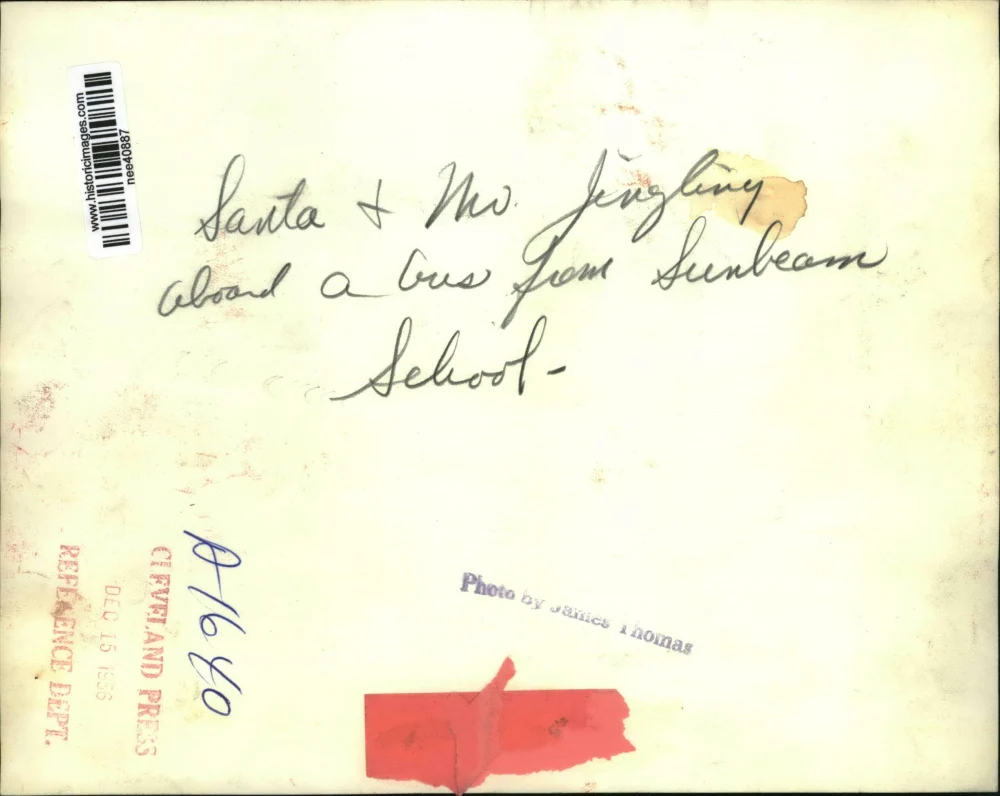 www.historicimages.com
nee40887
Santa & Mr. Jingling
aboard a bus from Sunbeam
School-
A-1640
CLEVELAND PRESS
DEC 15 1956
REFERENCE DEPT.
Photo by James Thomas